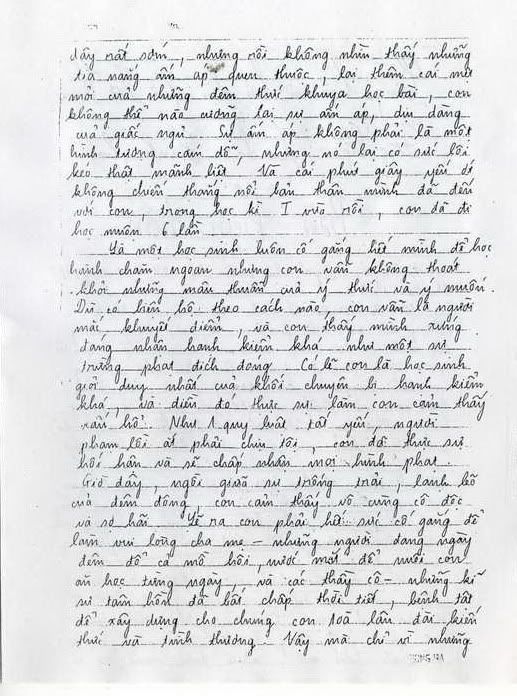 dậy rất sớm, nhưng rồi không nhìn thấy những
tia nắng ấm áp quen thuộc, lại thêm cái mệt
mỏi của những đêm thức khuya học bài, con
không thể nào cưỡng lại sự ấm áp, dịu dàng
của giấc ngủ. Sự ấm áp không phải là một
hình tượng cám dỗ, nhưng nó lại có sức lôi
kéo thật mãnh liệt. Và cái phút giây yếu ớt
không chiến thắng nổi bản thân mình đã đến
với con, trong học kì I vừa rồi, con đã đi
học muộn 6 lần.
Là một học sinh luôn cố gắng hết mình để học
hành chăm ngoan nhưng con vẫn không thoát
khỏi những mâu thuẫn của ý thức và ý muốn.
Dù có biện hộ theo cách nào, con vẫn là người
mắc khuyết điểm, và con thấy mình xứng
đáng nhận hạnh kiểm khá như một sự
trừng phạt đích đáng. Có lẽ con là học sinh
giỏi duy nhất của khối chuyên bị hạnh kiểm
khá, và điều đó thực sự làm con cảm thấy
xấu hổ. Như 1 quy luật tất yếu, người
phạm lỗi ắt phải chịu tội, con đã thực sự
hối hận và sẽ chấp nhận mọi hình phạt.
Giờ đây, ngồi giữa sự trống trải, lạnh lẽo
của đêm đông, con cảm thấy vô cùng cô độc
và sợ hãi. Lẽ ra con phải hết sức cố gắng để
làm vui lòng cha mẹ - những người đang ngày
đêm đổ cả mồ hôi, nước mắt để nuôi con
ăn học từng ngày, và các thầy cô - những kĩ
sư tâm hồn đã bất chấp thời tiết, bệnh tật
để xây dựng cho chúng con toà lâu đài kiến
thức và tình thương. Vậy mà chỉ vì những